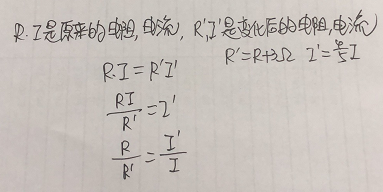 R.I是原来的电阻,电流, R',I'是变化后的电阻,电流
R'=R+3Ω I'=\frac{4}{5}I
R·I=R'I'
\frac{RI}{R'}=I'
\frac{R}{R'}=\frac{I'}{I}